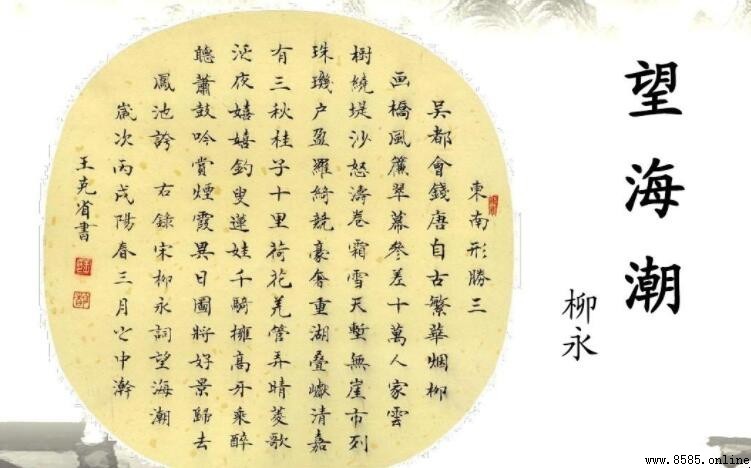 望海潮
柳永
東南形勝三
吳都會錢唐自古繁華烟柳
畫橋風簾翠幕參差十萬人家雲
樹繞堤沙怒濤卷霜雪天塹無崖市列
珠璣户盈羅綺競豪奢重湖疊巘清嘉
有三秋桂子十里荷花羌管弄晴菱歌
泛夜嬉嬉釣叟蓮娃千騎擁高牙乘醉
聽蕭鼓吟賞煙霞異日圖將好景歸去
鳳池誇 右錄宋柳永詞望海潮
歲次丙戌陽春三月之中澣
王克省書
www.8585.online